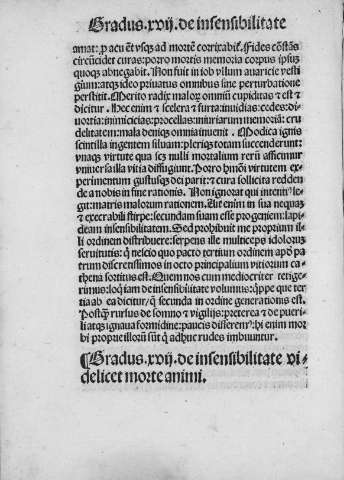 Gradus.xvij.de insensibilitate
amat: ꝑ aeu eṫ vsqꝫ ad mortē
Fides cōstās
circūcidet curas: porro mortis memoria corpus ipsuꝫ
quoqꝫ abnegabit. Non fuit in iob vllum auaricie vesti
gium: atqꝫ ideo priuatus omnibus sine perturbatione
perstitit. Merito radix maloꝝ omniū cupiditas ⁊ est ⁊
dicitur. Hec enim ⁊ scelera ⁊ furta: inuidias: cedes: di-
uortia: inimicicias: procellas: iniuriarum memoriā: cru
delitatem: mala deniqꝫ omnia inuenit. Modica ignis
scintilla ingentem siluam: pleriqꝫ totam succenderunt:
vnaqꝫ virtute qua sciꝫ nulli mortalium rerū afficimur
vniuersa illa vitia diffugiunt. Porro hmōi virtutem ex-
perimentum gustusqꝫ dei parit: ⁊ cura sollicita redden
de a nobis in fine rationis. Non ignorat qui intente le
git: matris malorum rationem. Ait enim in sua nequaꝫ
⁊ execrabili stirpe: secundam suam esse progeniem: lapi-
deam insensibilitatem. Sed prohibuit me proprium il-
li ordinem distribuere: serpens ille multiceps idoloruꝫ
seruitutis: q̄ nescio quo pacto tertium ordinem apd̄ pa
trum discretissimos in octo principalium vitiorum ca-
thena sortitus est. Quem nos cum mediocriter tetige-
rimus: loq̄ iam de insensibilitate volumus: q̄ppe que ter
tia ab ea dicitur/ q̄ secunda in ordine generationis est.
Postq̄ꝫ rursus de somno ⁊ vigilijs: preterea ⁊ de pueri-
li atqꝫ ignaua formidine: paucis disserem: hi enim mor
bi proprie illorū sūt q̄ adhuc rudes imbuuntur.
¶Gradus.xvij.de insensibilitate vi
delicet morte animi.